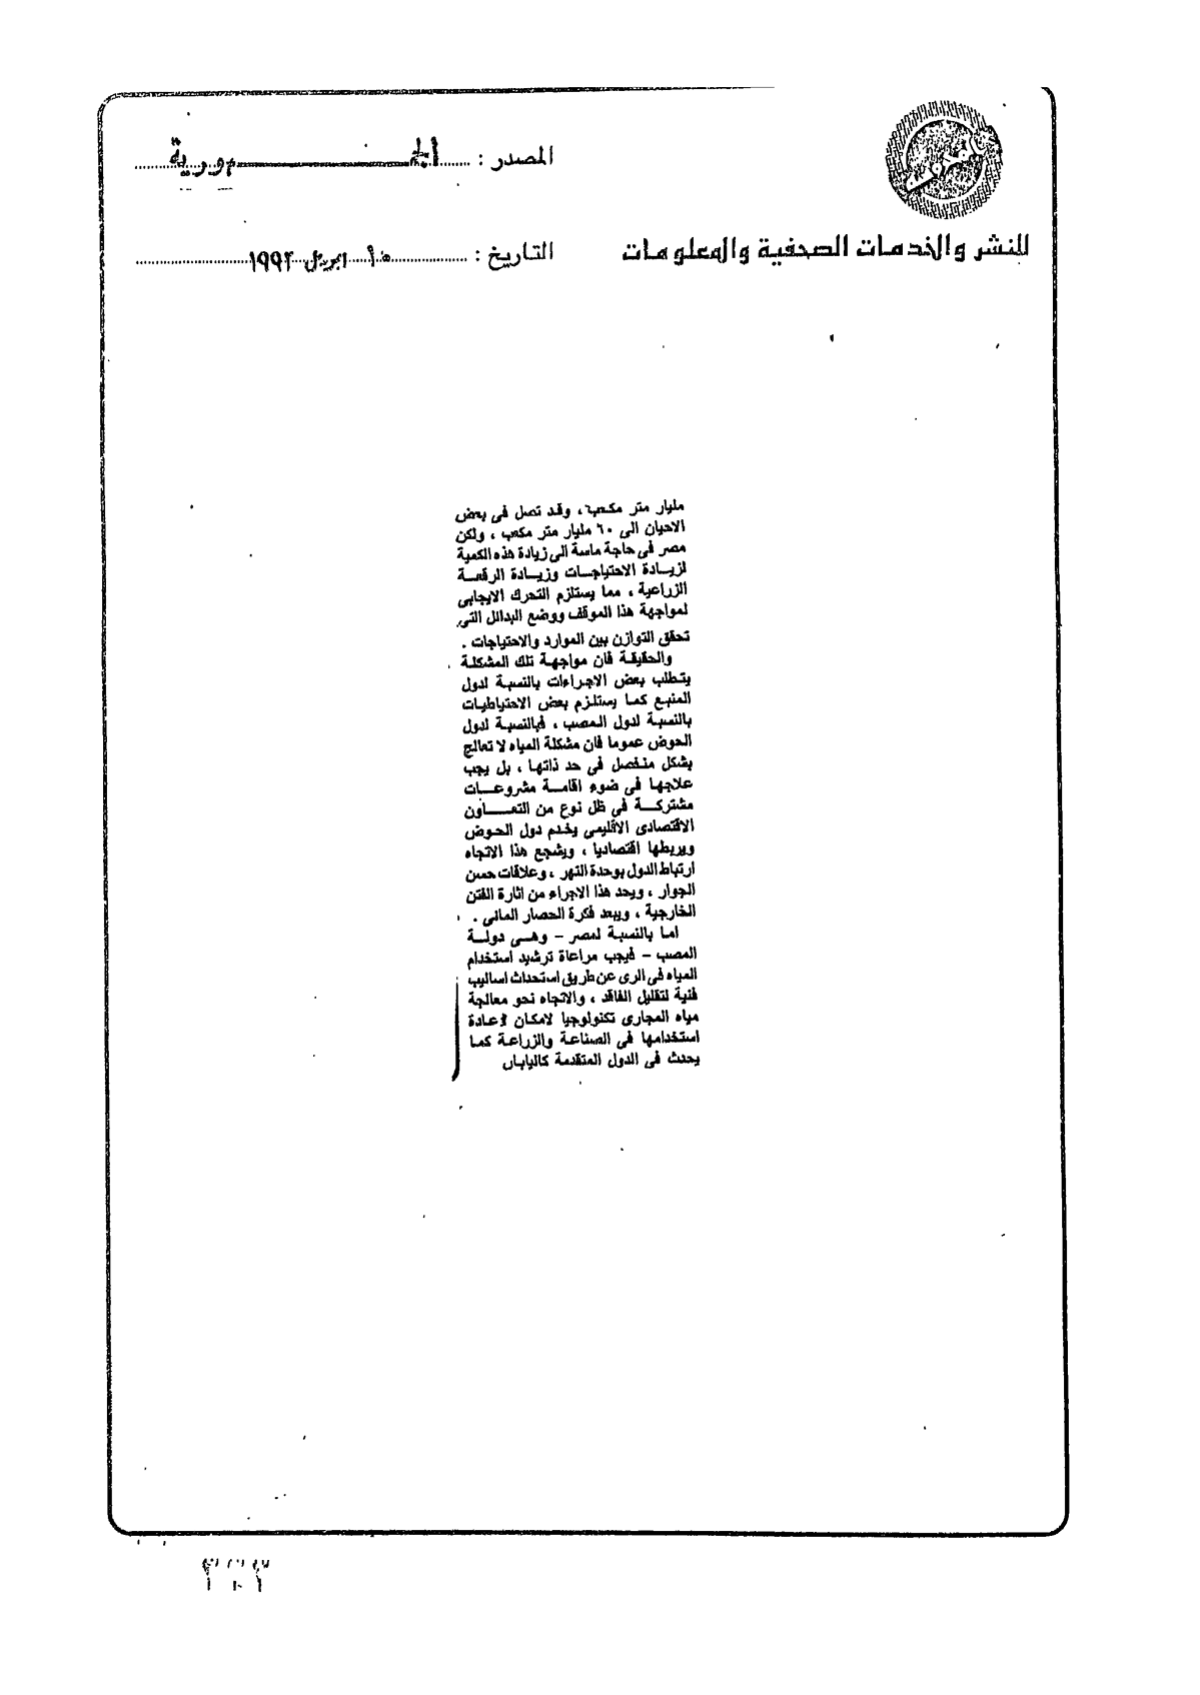 المصدر : الجمهورية
للنشر والخدمات الصحفية والمعلومات
التاريخ : ١٠ ابريل ١٩٩٢
مليار متر مكعب ، وقد تصل فى بعض
الاحيان الى ٦٠ مليار متر مكعب ، ولكن
مصر فى حاجة ماسة الى زيادة هذه الكمية
لزيادة الاحتياجات وزيادة الرقعة
الزراعية ، مما يستلزم التحرك الايجابى
لمواجهة هذا الموقف ووضع البدائل التى
تحقق التوازن بين الموارد والاحتياجات .
والحقيقة فان مواجهة تلك المشكلة
يتطلب بعض الاجراءات بالنسبة لدول
المنبع كما يستلزم بعض الاحتياطيات
بالنسبة لدول المصب ، فبالنسبة لدول
الحوض عموما فان مشكلة المياه لا تعالج
بشكل منفصل فى حد ذاتها ، بل يجب
علاجها فى ضوء اقامة مشروعات
مشتركة فى ظل نوع من التعاون
الاقتصادى الاقليمى يخدم دول الحوض
ويربطها اقتصاديا ، ويشجع هذا الاتجاه
ارتباط الدول بوحدة النهر ، وعلاقات حسن
الجوار ، ويحد هذا الاجراء من اثارة الفتن
الخارجية ، ويبعد فكرة الحصار المائى .
اما بالنسبة لمصر - وهى دولة
المصب - فيجب مراعاة ترشيد استخدام
المياه فى الرى عن طريق استحداث اساليب
فنية لتقليل الفاقد ، والاتجاه نحو معالجة
مياه المجارى تكنولوجيا لامكان اعادة
استخدامها فى الصناعة والزراعة كما
يحدث فى الدول المتقدمة كاليابان